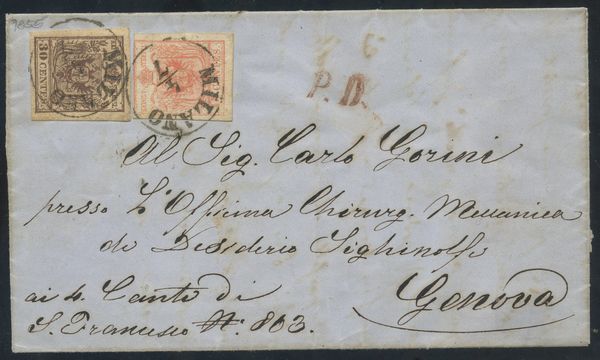 1855
30 CENTES
MILANO
MILANO
P.D.
Al Sig. Carlo Gorini
presso L'Officina Chirurg. Meccanica
de Desiderio Sighinolfi
Genova
ai 4. Canti di
S. Francesco N. 863.